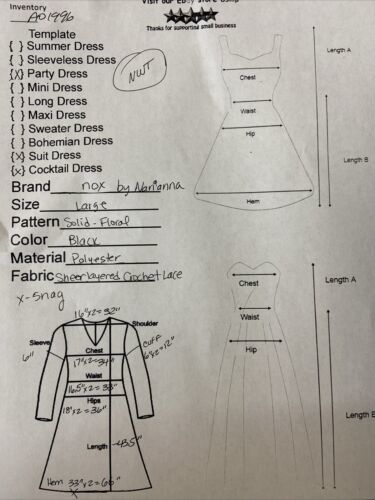 Visit our EBay store
Inventory
A01996
Thanks for supporting small business
Template
{ } Summer Dress
{ } Sleeveless Dress
{X} Party Dress
{ } Mini Dress
{ } Long Dress
{ } Maxi Dress
{ } Sweater Dress
{ } Bohemian Dress
{X} Suit Dress
{x} Cocktail Dress
NWT
Brand nox by Nabrianna
Size Large
Pattern Solid - Floral
Color Black
Material Polyester
Fabric Sheer layered Crochet Lace
Length A
Chest
Waist
Hip
Length B
Hem
Length A
Chest
Waist
Hip
Length B
x-snag
16"x2=32"
Shoulder
Sleeve
6"
Cuff
6"x2=12"
Chest
17"x2=34"
Waist
16.5"x2=33"
Hips
18"x2=36"
Length 43.5"
Hem 33"x2=66"
X